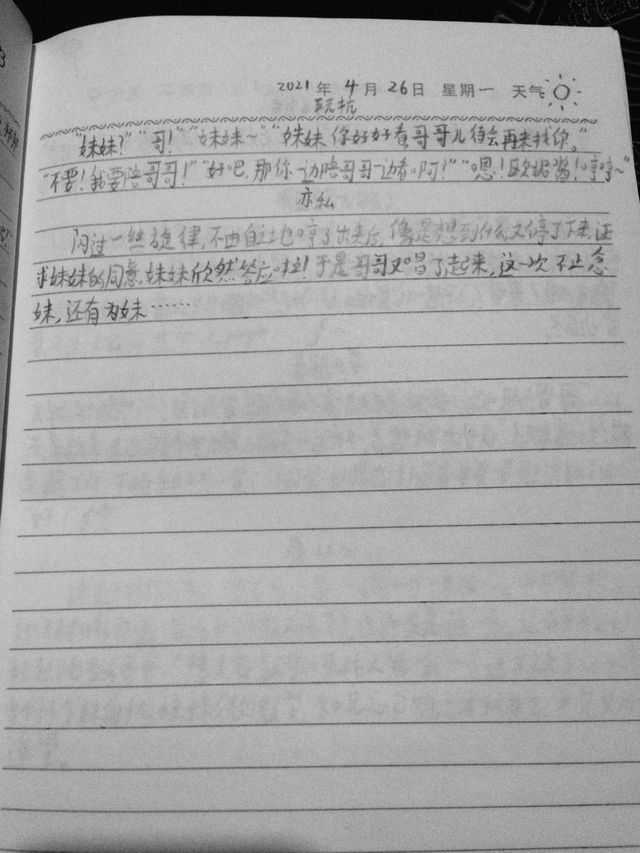 2021年 4月 26日 星期一 天气
玩坑
"妹妹?""哥!""妹妹~""妹妹,你好好看哥哥儿待会再来找你。"
"不要!我要陪哥哥!""好吧,那你一边陪哥哥一边看啊?""嗯!哼哼~"
亦私
闪过一丝旋律,不由自主地哼了出来后,像是想到什么又停了下来,征
求妹妹的同意,妹妹欣然答应啦!于是哥哥又唱了起来,这一次不止念
妹,还有为妹……